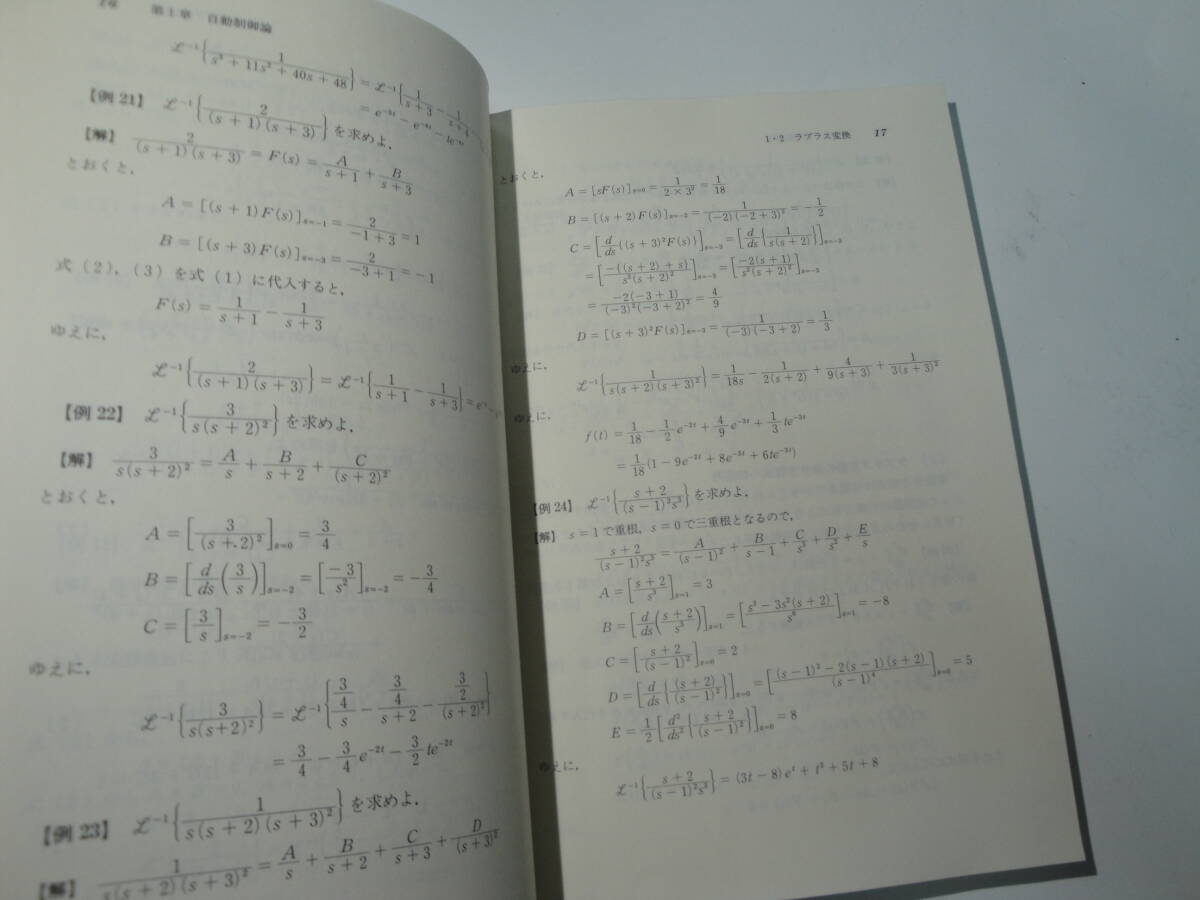 第1章 自動制御論
ℒ⁻¹{1/(s³ + 11s² + 40s + 48)} = ℒ⁻¹{1/(s + 3) − 1/(s + 4)
= e⁻³ᵗ − e⁻⁴ᵗ − te⁻⁴ᵗ
【例21】 ℒ⁻¹{2/((s + 1)(s + 3))} を求めよ.
【解】 2/((s + 1)(s + 3)) = F(s) = A/(s + 1) + B/(s + 3)
とおくと,
A = [(s + 1)F(s)]ₛ₌₋₁ = 2/(−1 + 3) = 1
B = [(s + 3)F(s)]ₛ₌₋₃ = 2/(−3 + 1) = −1
式 (2), (3) を式 (1) に代入すると,
F(s) = 1/(s + 1) − 1/(s + 3)
ゆえに,
ℒ⁻¹{2/((s + 1)(s + 3))} = ℒ⁻¹{1/(s + 1) − 1/(s + 3)} =
【例22】 ℒ⁻¹{3/(s(s + 2)²)} を求めよ.
【解】 3/(s(s + 2)²) = A/s + B/(s + 2) + C/(s + 2)²
とおくと,
A = [3/(s + 2)²]ₛ₌₀ = 3/4
B = [d/ds(3/s)]ₛ₌₋₂ = [−3/s²]ₛ₌₋₂ = −3/4
C = [3/s]ₛ₌₋₂ = −3/2
ゆえに,
ℒ⁻¹{3/(s(s+2)²)} = ℒ⁻¹{(3/4)/s − (3/4)/(s + 2) − (3/2)/(s+2)²}
= 3/4 − 3/4 e⁻²ᵗ − 3/2 te⁻²ᵗ
【例23】 ℒ⁻¹{1/(s(s + 2)(s + 3)²)} を求めよ.
【解】 1/(s(s + 2)(s + 3)²) = A/s + B/(s + 2) + C/(s + 3) + D/(s + 3)²
1・2 ラプラス変換 17
とおくと,
A = [sF(s)]ₛ₌₀ = 1/(2 × 3²) = 1/18
B = [(s + 2)F(s)]ₛ₌₋₂ = 1/((−2)(−2 + 3)²) = −1/2
C = [d/ds{(s + 3)²F(s)}]ₛ₌₋₃ = [d/ds{1/(s(s + 2))}]ₛ₌₋₃
= [−{(s + 2) + s}/(s²(s + 2)²)]ₛ₌₋₃ = [−2(s + 1)/(s²(s + 2)²)]ₛ₌₋₃
= −2(−3 + 1)/((−3)²(−3 + 2)²) = 4/9
D = [(s + 3)²F(s)]ₛ₌₋₃ = 1/((−3)(−3 + 2)) = 1/3
ゆえに,
ℒ⁻¹{1/(s(s + 2)(s + 3)²)} = 1/18s − 1/(2(s + 2)) + 4/(9(s + 3)) + 1/(3(s + 3)²)
ゆえに,
f(t) = 1/18 − 1/2 e⁻²ᵗ + 4/9 e⁻³ᵗ + 1/3 te⁻³ᵗ
= 1/18 (1 − 9e⁻²ᵗ + 8e⁻³ᵗ + 6te⁻³ᵗ)
【例24】 ℒ⁻¹{(s + 2)/((s − 1)²s³)} を求めよ.
【解】 s = 1 で重根, s = 0 で三重根となるので,
(s + 2)/((s − 1)²s³) = A/(s − 1)² + B/(s − 1) + C/s³ + D/s² + E/s
A = [(s + 2)/s³]ₛ₌₁ = 3
B = [d/ds((s + 2)/s³)]ₛ₌₁ = [(s³ − 3s²(s + 2))/s⁶]ₛ₌₁ = −8
C = [(s + 2)/(s − 1)²]ₛ₌₀ = 2
D = [d/ds{(s + 2)/(s − 1)²}]ₛ₌₀ = [((s − 1)² − 2(s − 1)(s + 2))/(s − 1)⁴]ₛ₌₀ = 5
E = 1/2 [d²/ds²{(s + 2)/(s − 1)²}]ₛ₌₀ = 8
ゆえに,
ℒ⁻¹{(s + 2)/((s − 1)²s³)} = (3t − 8)eᵗ + t² + 5t + 8